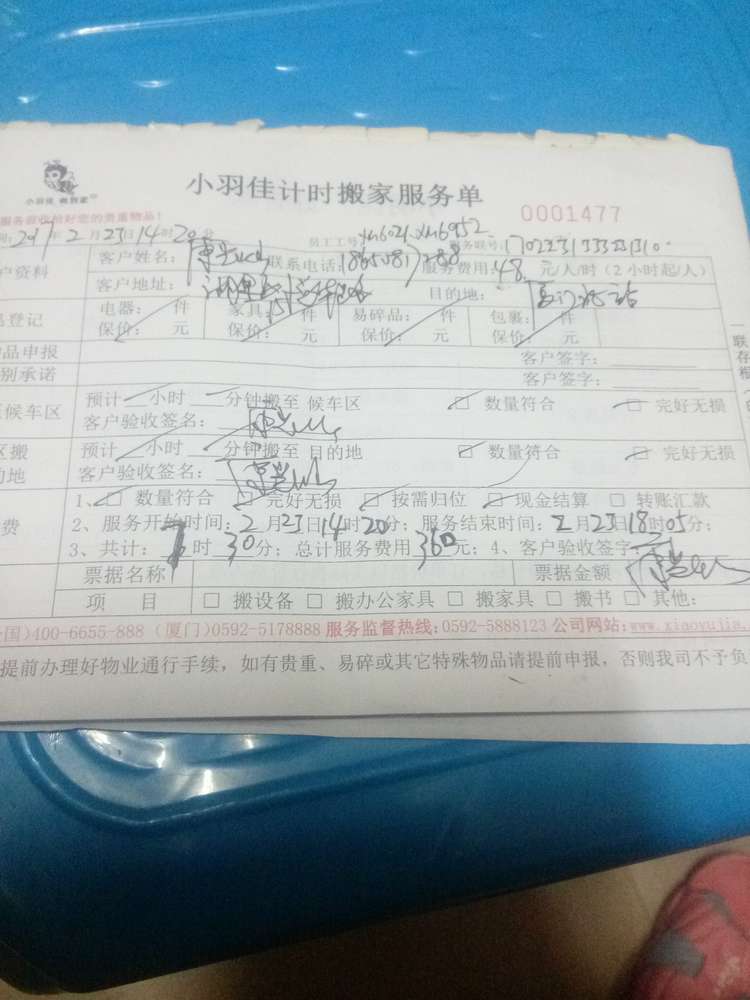 小羽佳 搬到家
小羽佳计时搬家服务单
0001477
服务前收拾好您的贵重物品!
2017年2月23日14时20分 员工工号 xm6021.xm6952 服务联号:
户资料 客户姓名: 联系电话: 服务费用:48 元/人/时(2小时起/人)
客户地址: 目的地:
登记 电器: 件 家具: 件 易碎品: 件 包裹: 件
保价: 元 保价: 元 保价: 元 保价: 元
品申报 客户签字:
别承诺 客户签字:
候车区 预计 小时 分钟搬至 候车区 数量符合 完好无损
客户验收签名:
区搬 预计 小时 分钟搬至 目的地 数量符合 完好无损
的地 客户验收签名:
1、 数量符合 完好无损 按需归位 现金结算 转账汇款
费 2、服务开始时间:2月23日14时20分;服务结束时间:2月23日18时05分;
3、共计:7时30分;总计服务费用360元;4、客户验收签字:
票据名称 票据金额
项 目 搬设备 搬办公家具 搬家具 搬书 其他:
国)400-6655-888 (厦门)0592-5178888 服务监督热线:0592-5888123 公司网站:www.xiaoyujia.
提前办理好物业通行手续,如有贵重、易碎或其它特殊物品请提前申报,否则我司不予负
联
存
根